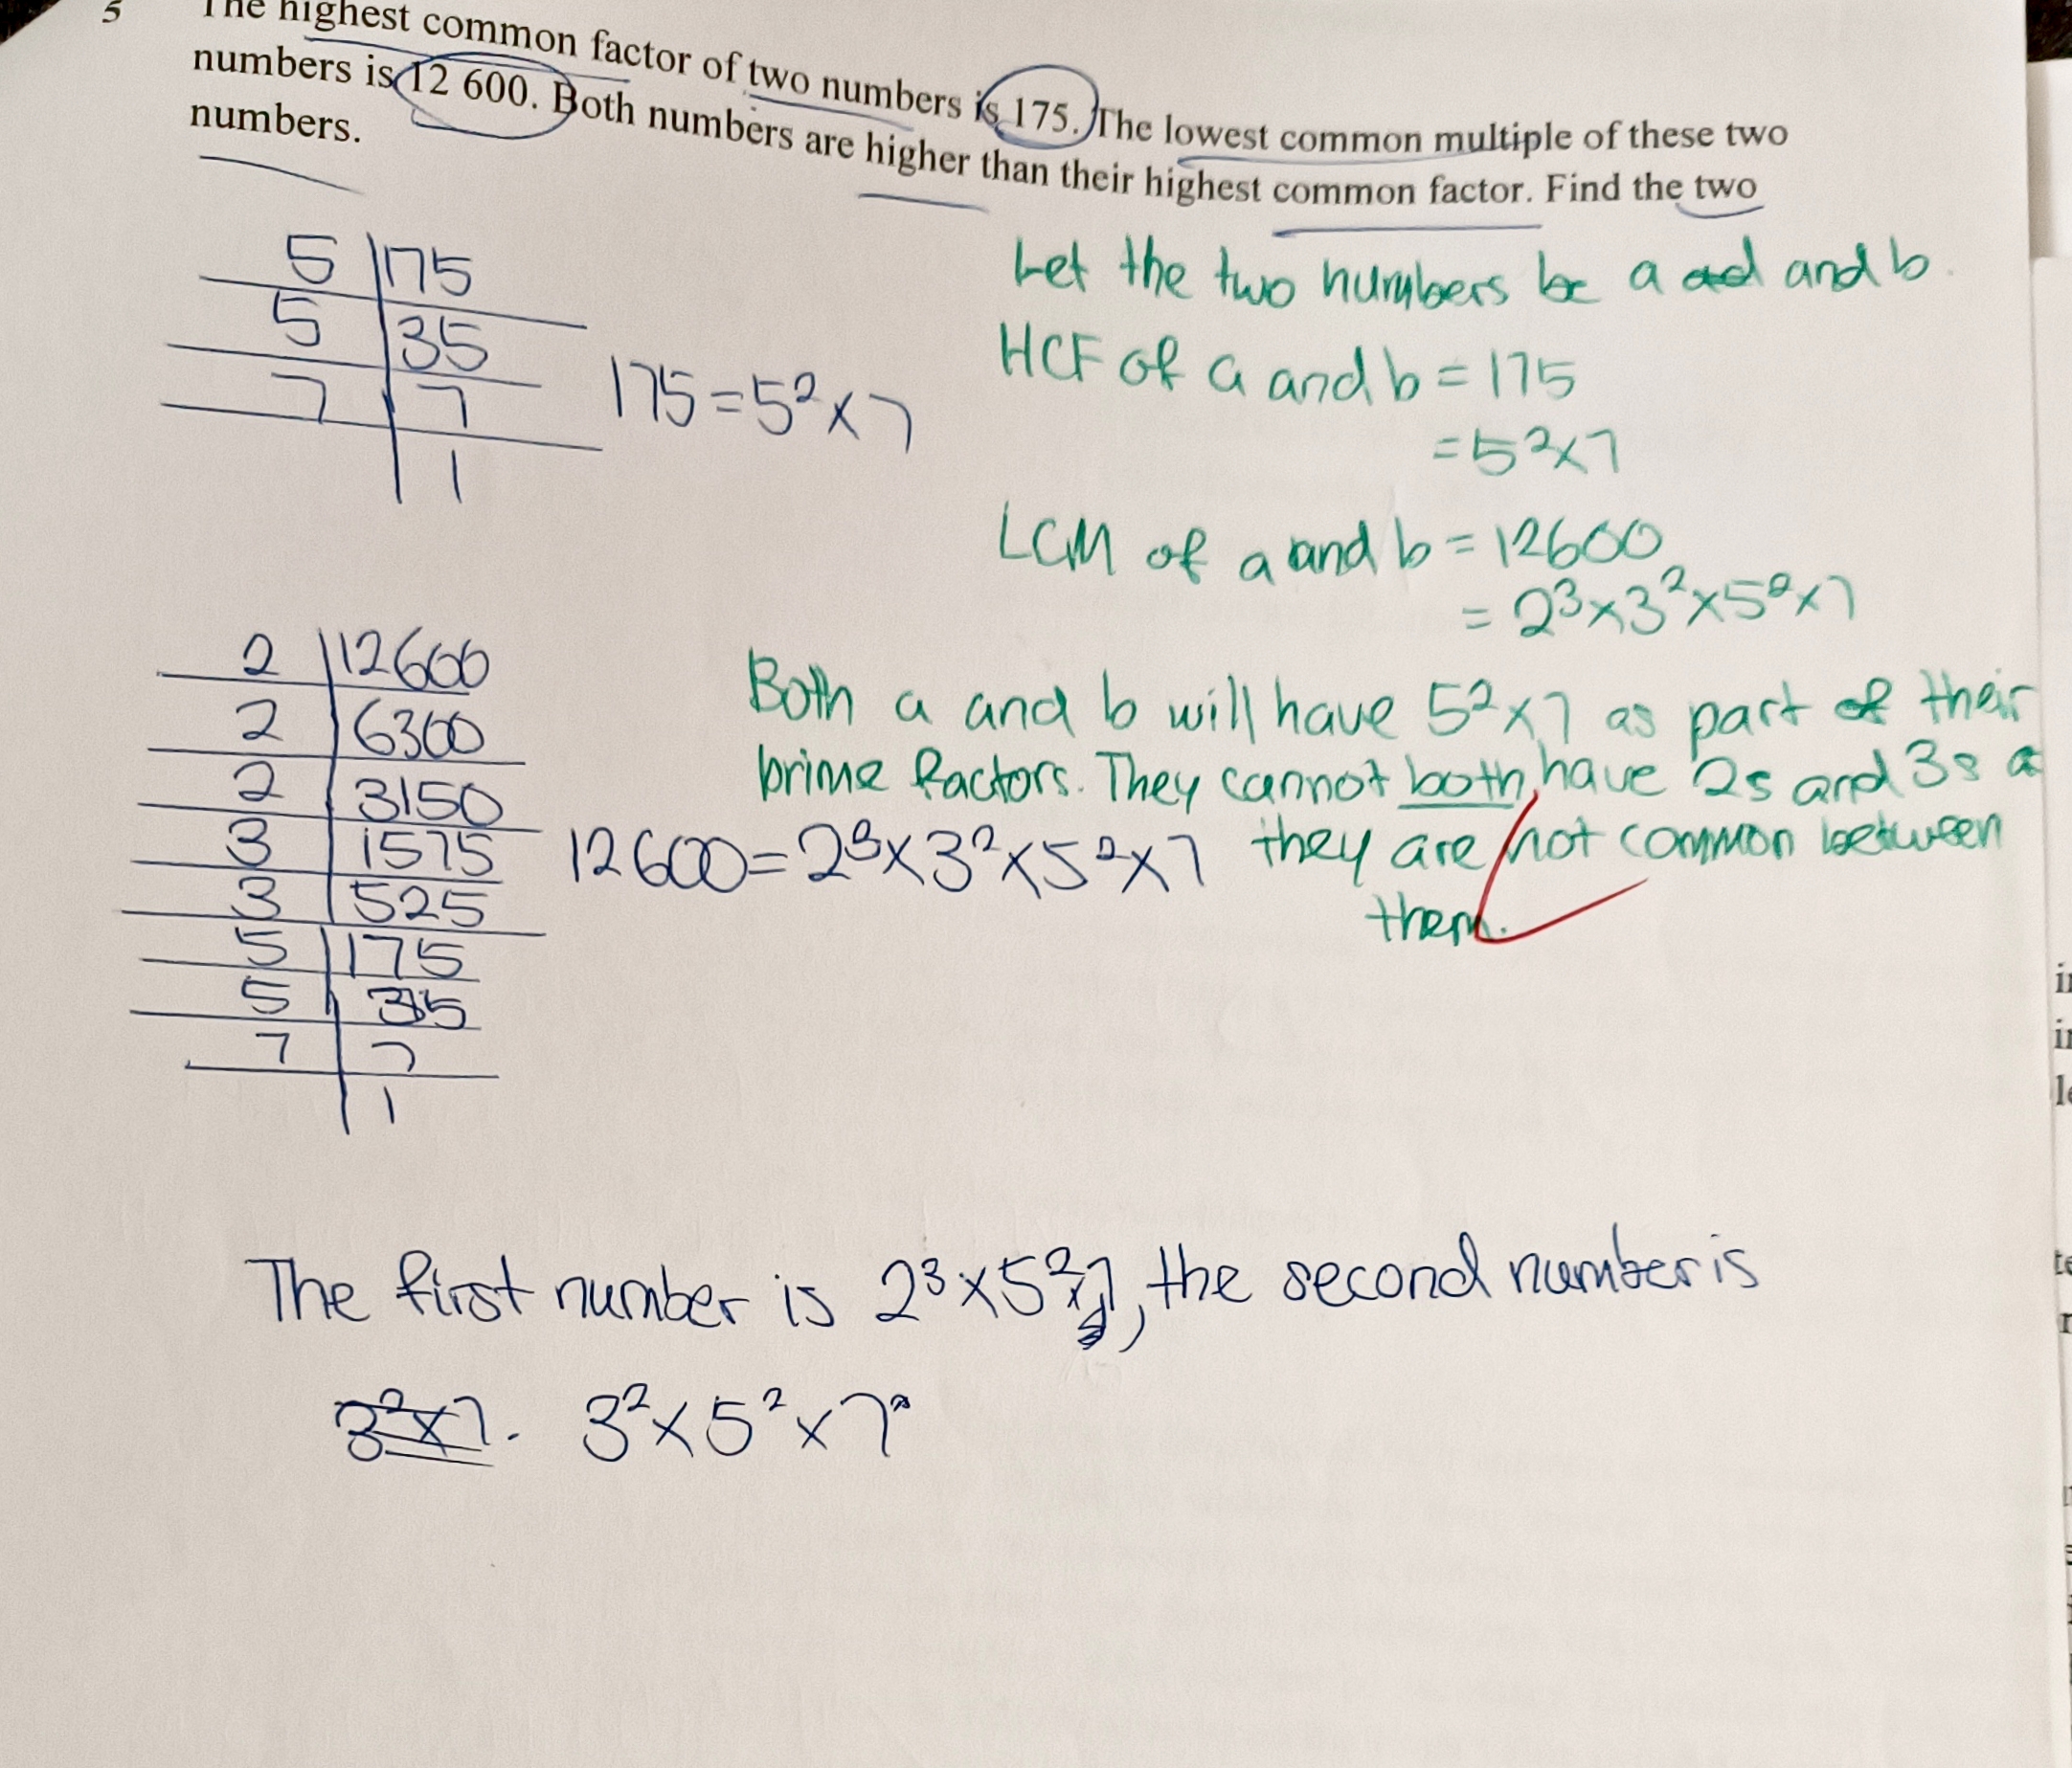 5 The highest common factor of two numbers is 175. The lowest common multiple of these two
numbers is 12 600. Both numbers are higher than their highest common factor. Find the two
numbers.
5 175
5 35
7 7
1
175 = 5² × 7
Let the two numbers be a and b.
HCF of a and b = 175
= 5² × 7
LCM of a and b = 12600
= 2³ × 3² × 5² × 7
2 12600
2 6300
2 3150
3 1575
3 525
5 175
5 35
7 7
1
12600 = 2³ × 3² × 5² × 7
Both a and b will have 5² × 7 as part of their
prime factors. They cannot both have 2s and 3s a
they are not common between
them.
The first number is 2³ × 5² × 7, the second number is
3² × 7. 3² × 5² × 7